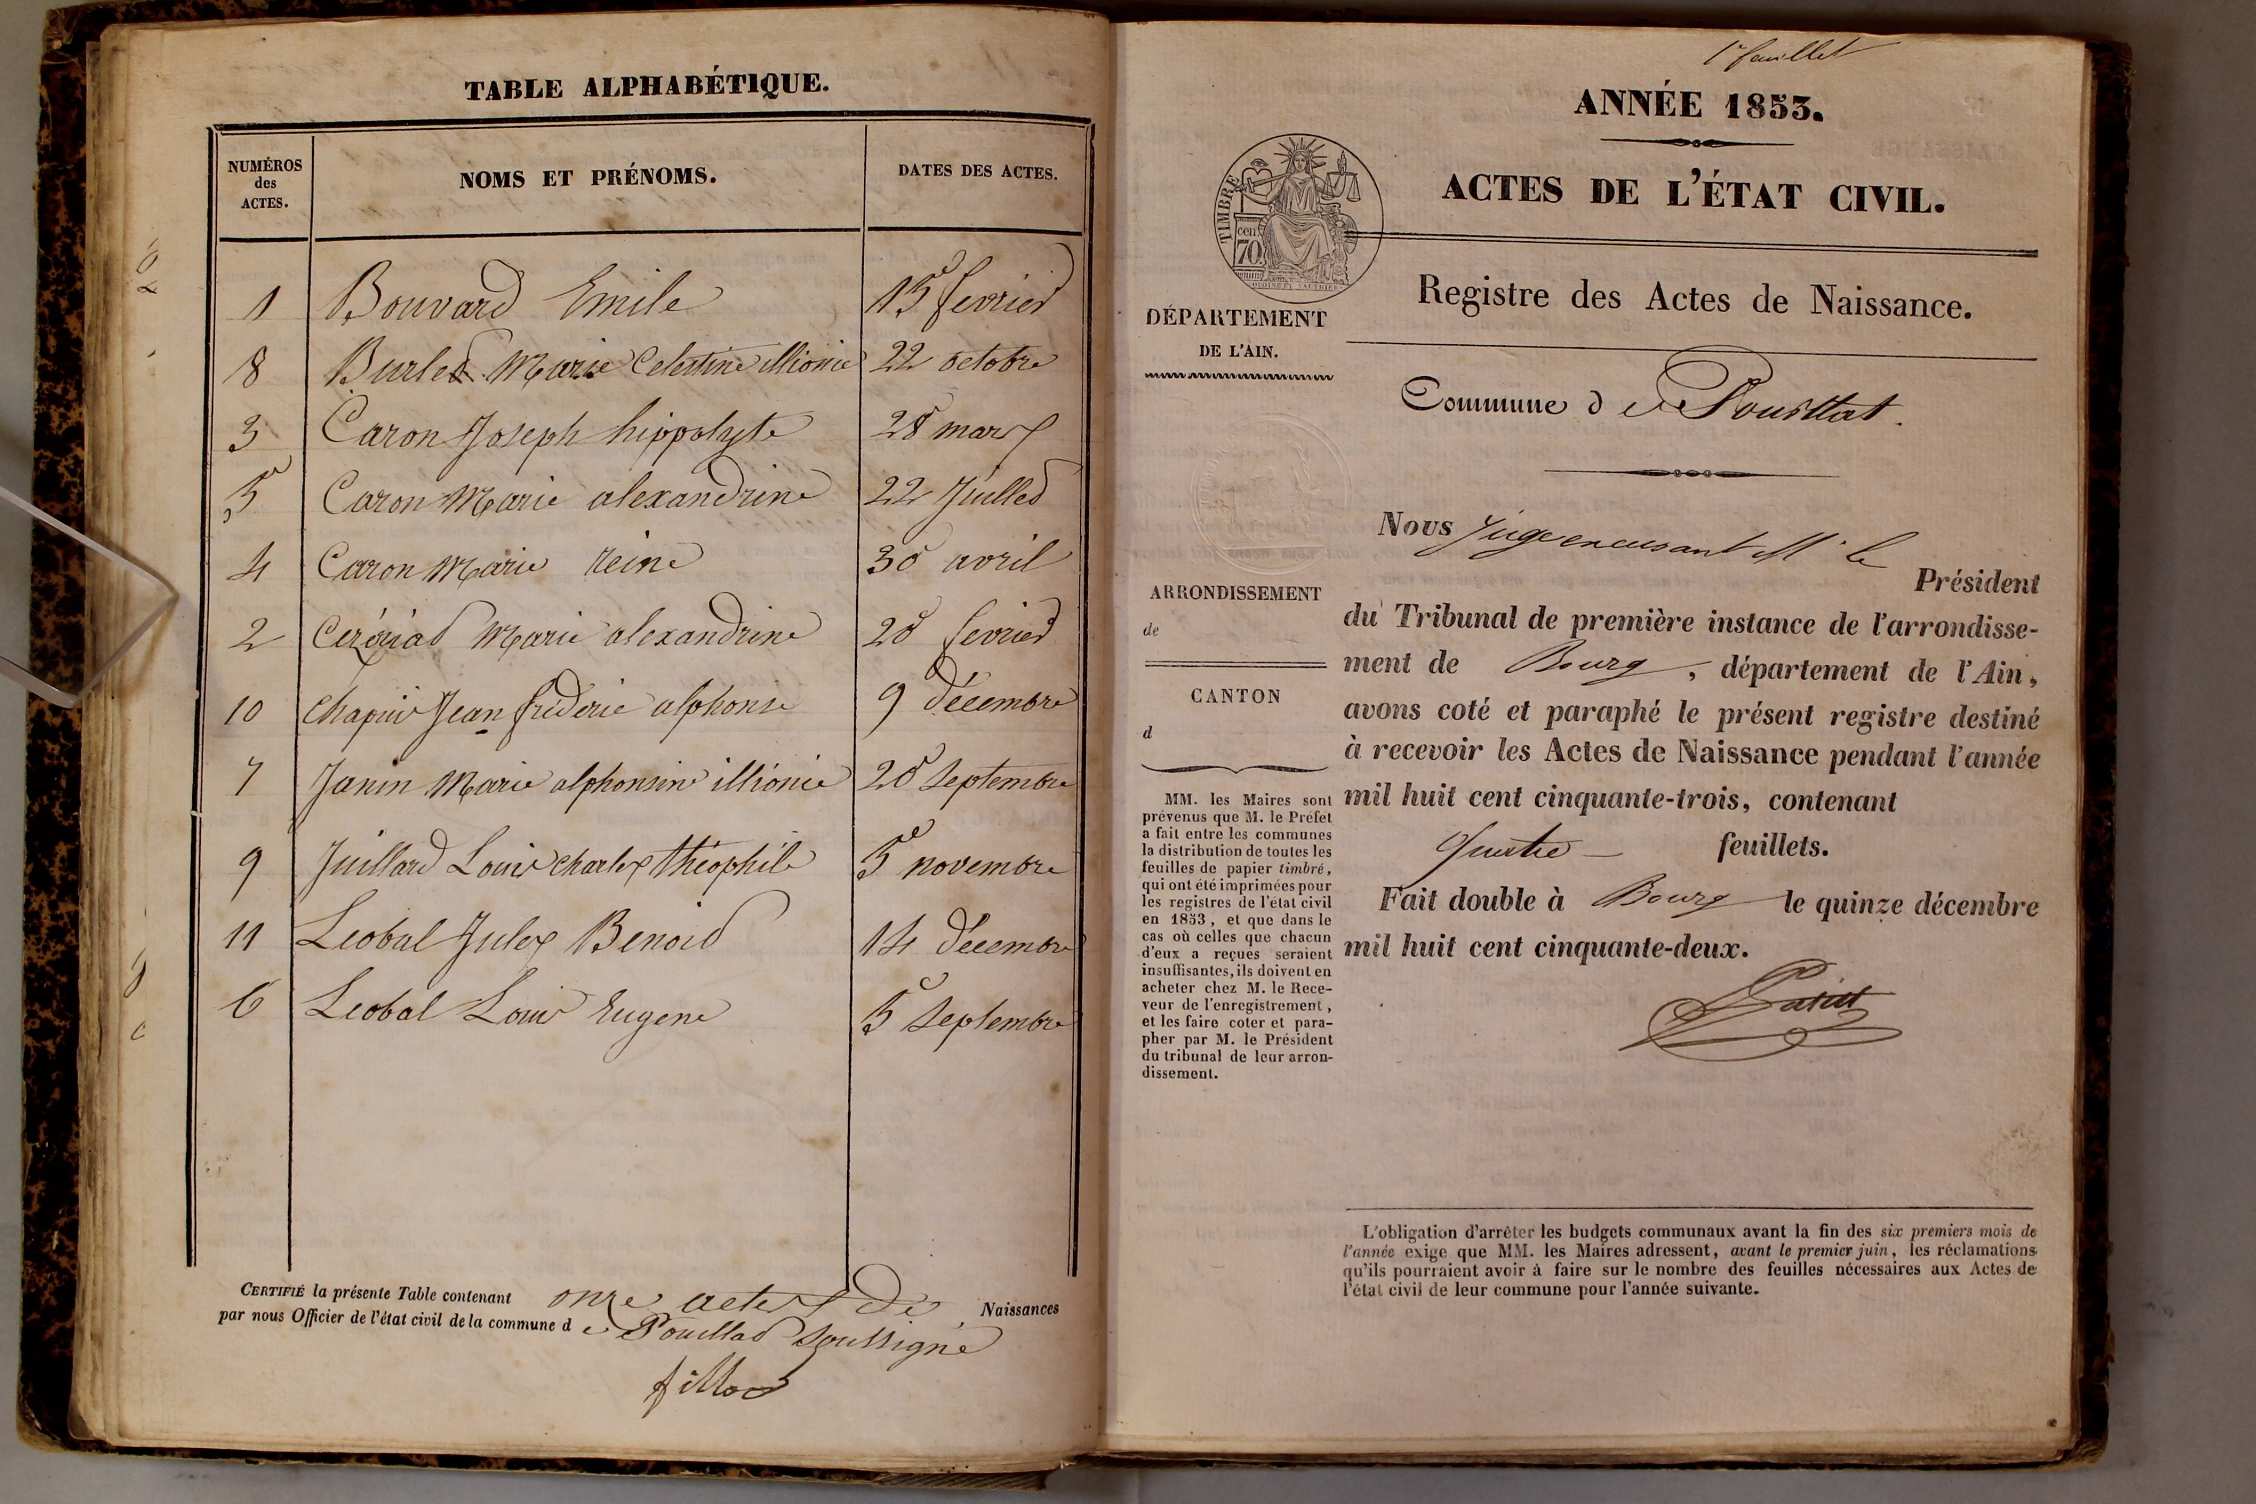 TABLE ALPHABÉTIQUE.
NUMÉROS des ACTES. NOMS ET PRÉNOMS. DATES DES ACTES.
1 Bouvard Emile 15 fevrier
8 Burled Marie Celestine illionie 22 octobre
3 Caron Joseph hippolyte 28 mars
5 Caron Marie alexandrine 22 Juilled
4 Caron Marie reine 30 avril
2 Marie alexandrine 20 fevrier
10 Chapuis Jean frederic alphonse 9 décembre
7 Janin Marie alphonsine illionie 20 septembre
9 Juillard Louis charles théophile 5 novembre
11 Leobal Jules Benoid 14 décembre
6 Leobal Louis Eugene 5 septembre
CERTIFIÉ la présente Table contenant onze actes de Naissances
par nous Officier de l'état civil de la commune d e Pouillad soussigné
fillod
1er feuillet
ANNÉE 1853.
ACTES DE L'ÉTAT CIVIL.
TIMBRE
cen
70
Registre des Actes de Naissance.
DÉPARTEMENT
DE L'AIN.
Commune d e Pouillat.
Nous Juge en cusant M. le
Président
du Tribunal de première instance de l'arrondisse-
ment de Bourg, département de l'Ain,
avons coté et paraphé le présent registre destiné
à recevoir les Actes de Naissance pendant l'année
mil huit cent cinquante-trois, contenant
Quatre feuillets.
Fait double à Bourg le quinze décembre
mil huit cent cinquante-deux.
ARRONDISSEMENT
de
CANTON
d
MM. les Maires sont
prévenus que M. le Préfet
a fait entre les communes
la distribution de toutes les
feuilles de papier timbré,
qui ont été imprimées pour
les registres de l'état civil
en 1853, et que dans le
cas où celles que chacun
d'eux a reçues seraient
insuffisantes, ils doivent en
acheter chez M. le Rece-
veur de l'enregistrement,
et les faire coter et para-
pher par M. le Président
du tribunal de leur arron-
dissement.
L'obligation d'arrêter les budgets communaux avant la fin des six premiers mois de
l'année exige que MM. les Maires adressent, avant le premier juin, les réclamations
qu'ils pourraient avoir à faire sur le nombre des feuilles nécessaires aux Actes de
l'état civil de leur commune pour l'année suivante.